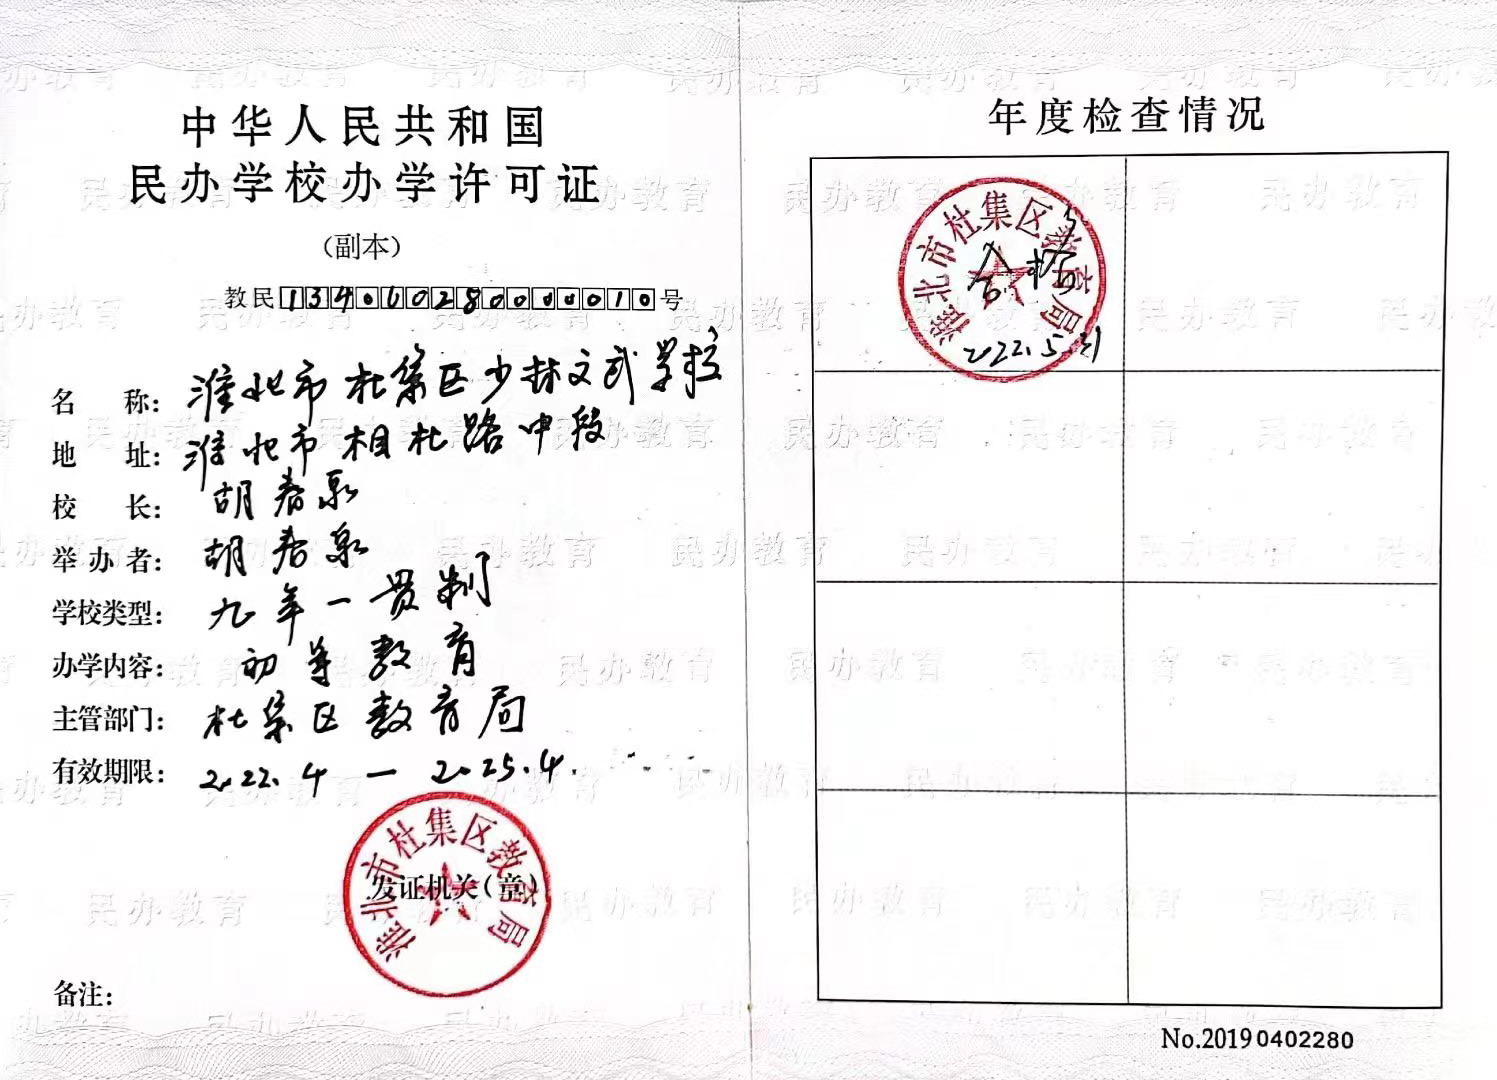 中华人民共和国
民办学校办学许可证
(副本)
教民134060280000010号
名 称: 淮北市杜集区少林文武学校
地 址: 淮北市相杜路中段
校 长: 胡春泉
举办者: 胡春泉
学校类型: 九年一贯制
办学内容: 初等教育
主管部门: 杜集区教育局
有效期限: 2022.4 — 2025.4.
淮北市杜集区教育局
发证机关(章)
备注:
年度检查情况
淮北市杜集区教育局
合格
2022.5.31
No.20190402280